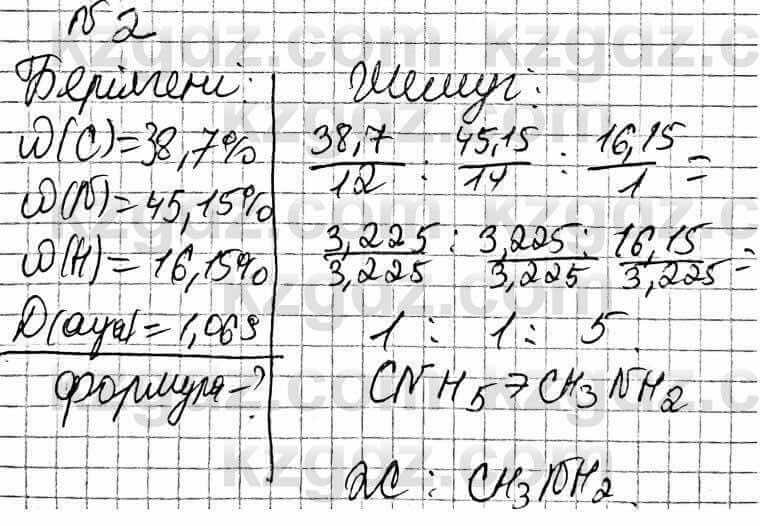 №2
Берілгені:
ω(C)=38,7%
ω(N)=45,15%
ω(H)=16,15%
D(ауа)=1,069
формула-?
Шешуі:
38,7/12 : 45,15/14 : 16,15/1 =
3,225/3,225 : 3,225/3,225 : 16,15/3,225 =
1 : 1 : 5.
CNH₅ → CH₃NH₂
ЖС: CH₃NH₂.
kzgdz.com